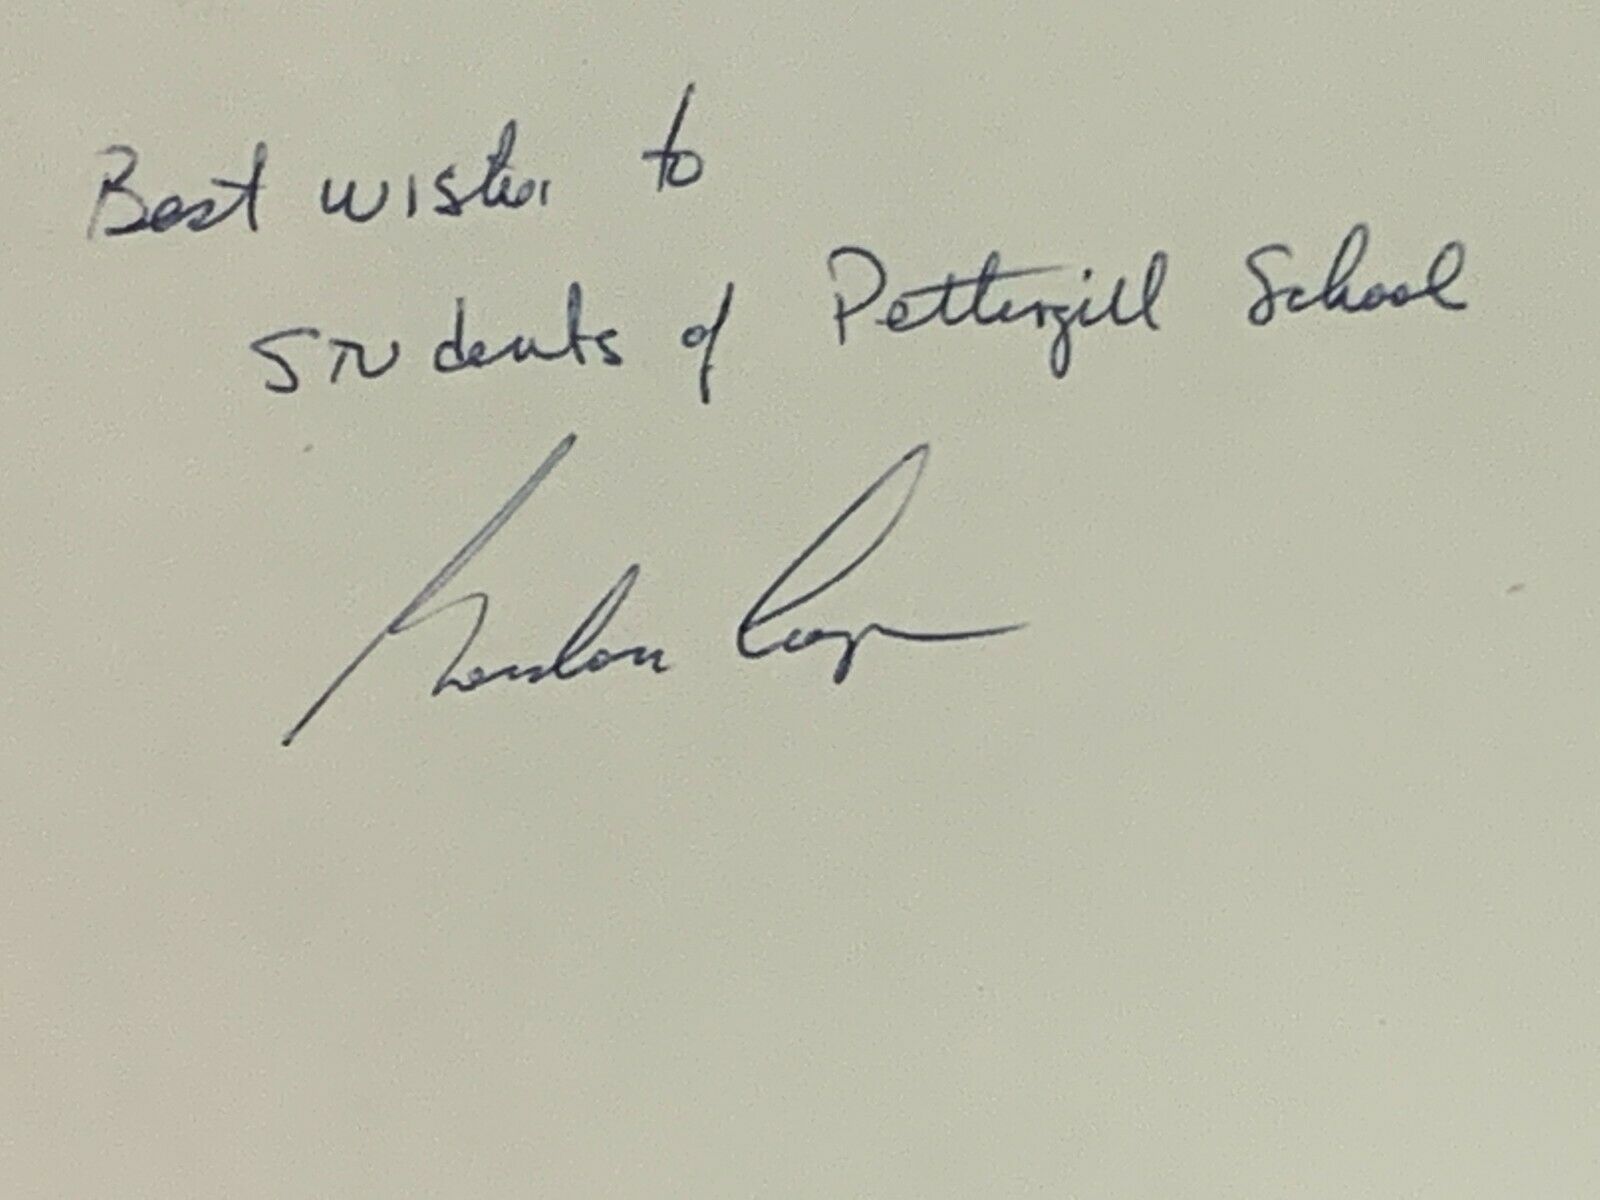 Best wishes to
students of Pettergill School
Gordon Cooper